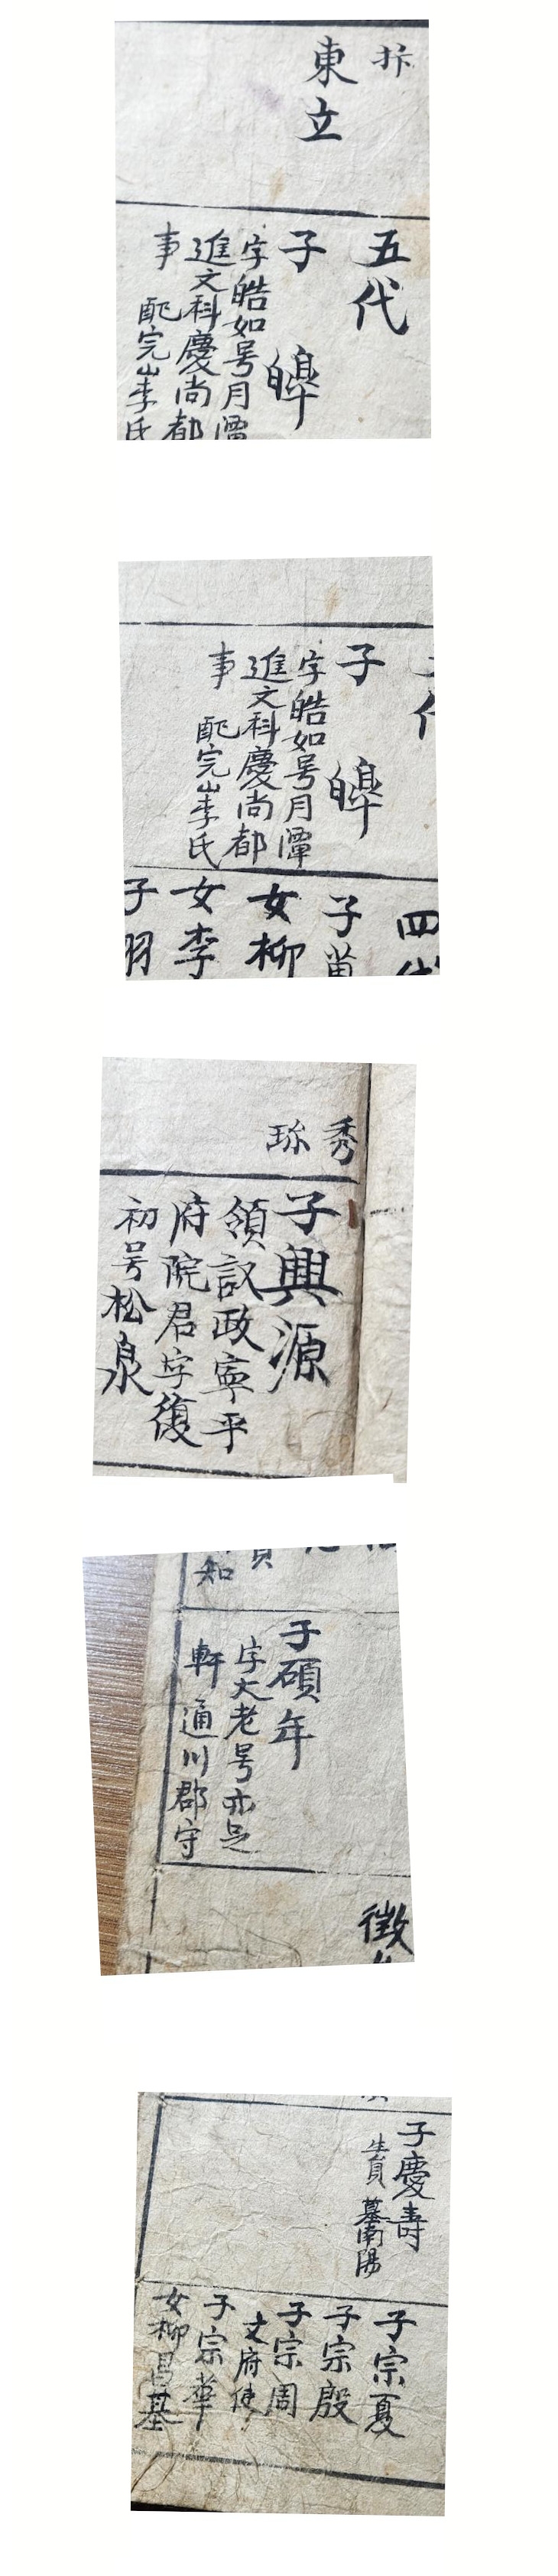 拤
東立
五代
子 皞
字皓如号月潭
進文科慶尚都
事 配完山李氏
子 皞
字皓如号月潭
進文科慶尚都
事 配完山李氏
四
子
女柳
女李
子羽
秀
珎
子興源
領議政寧平
府院君字復
初号松泉
知
子碩年
字大老号亦足
軒 通川郡守
徵
子慶壽
生員 墓南陽
子宗夏
子宗殷
子宗周
文府使
子宗華
女柳昌基